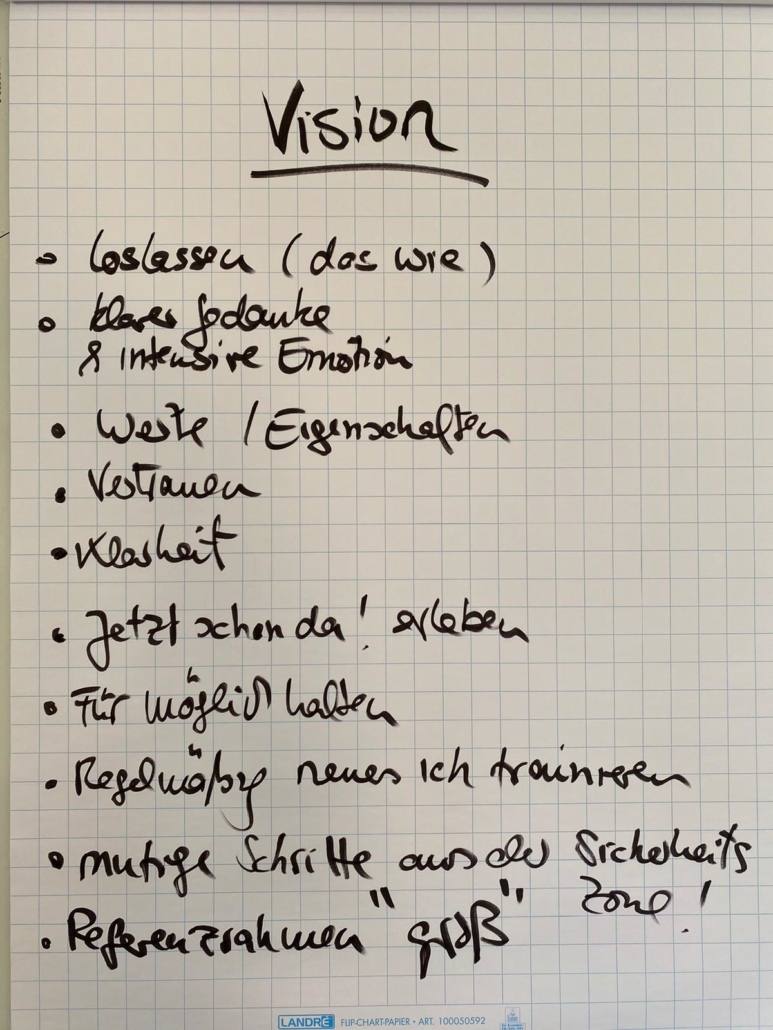 Vision
• loslassen (das wie)
• klarer Gedanke
& intensive Emotion
• Werte / Eigenschaften
• Vertrauen
• Klarheit
• Jetzt schon da! erleben
• Für möglich halten
• Regelmäßig neues ich trainieren
• mutige Schritte aus der Sicherheits
Zone!
• Referenzrahmen "groß"
LANDRÉ FLIP-CHART-PAPIER • ART. 100050592